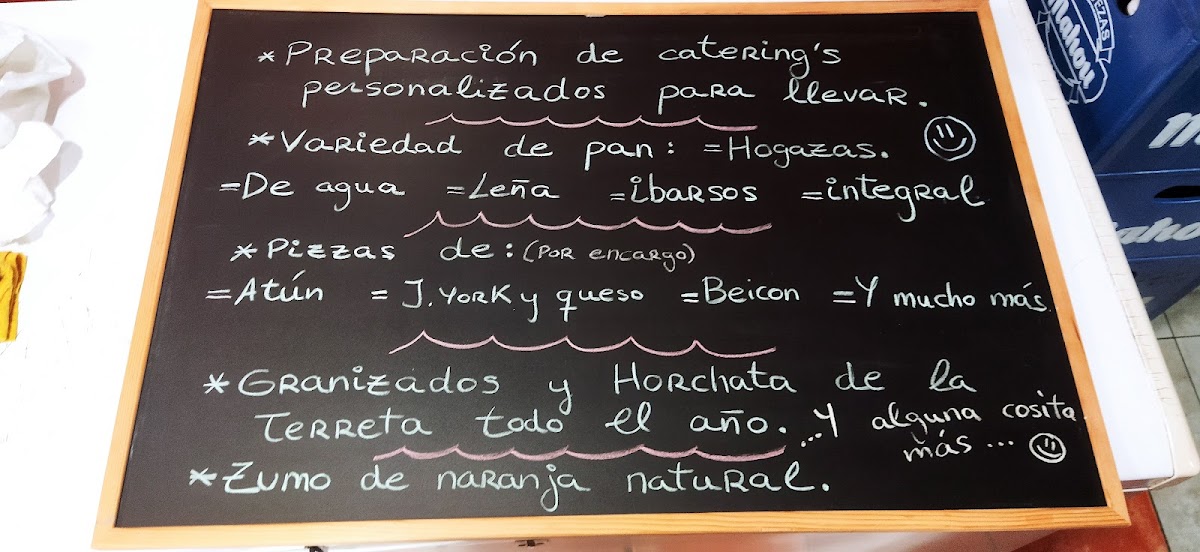 * Preparación de catering's
personalizados para llevar.
* Variedad de pan: = Hogazas.
= De agua = Leña = ibarsos = integral
* Pizzas de: (Por encargo)
= Atún = J. York y queso = Beicon = Y mucho más.
* Granizados y Horchata de la
Terreta todo el año. ...Y alguna cosita
más ...
* Zumo de naranja natural.
Mahou